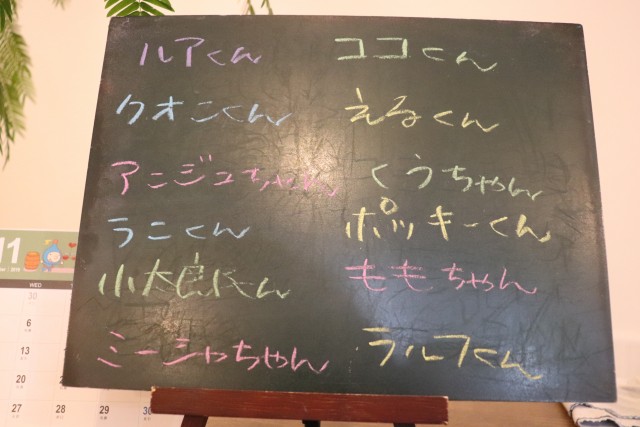 ルアくん
ココくん
クオンくん
えるくん
アンジュちゃん
くうちゃん
ラニくん
ポッキーくん
小太郎くん
ももちゃん
ミーシャちゃん
ラルフくん
11
WED
30
6
13
20
27
28
29
30